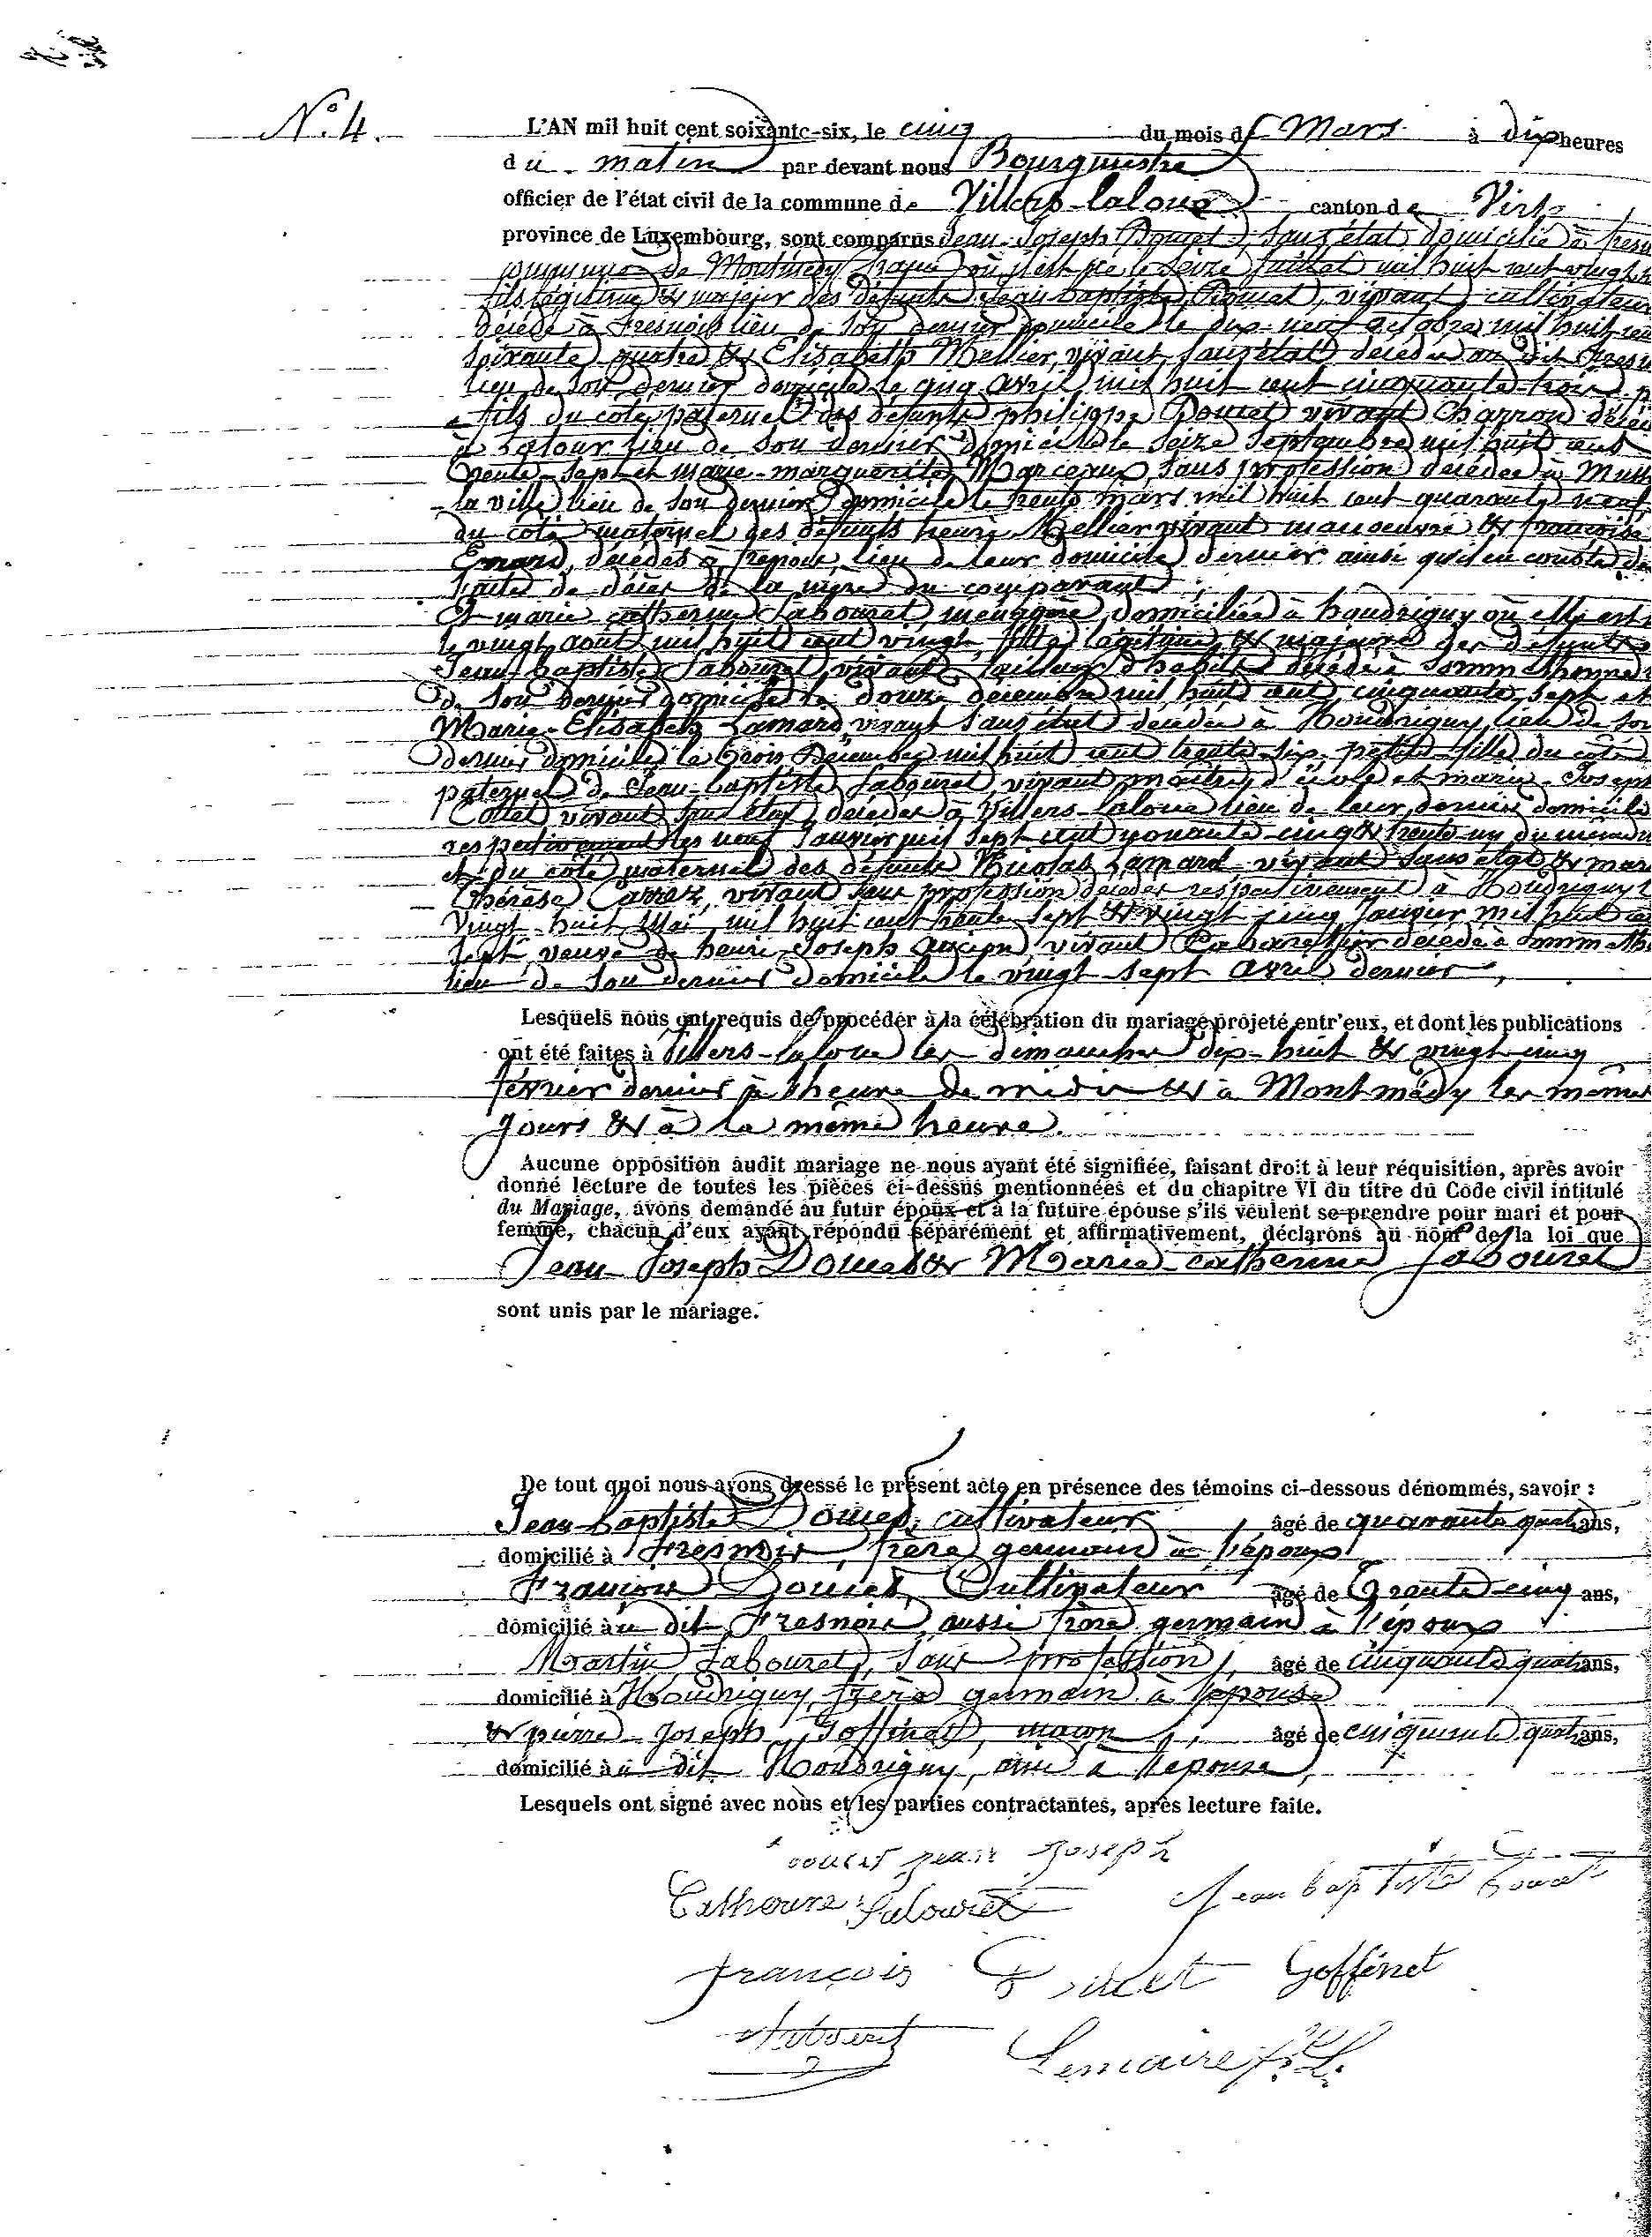 N.° 4.
L'AN mil huit cent soixante-six, le cinq du mois de Mars à dix heures
du matin par devant nous Bourgmestre
officier de l'état civil de la commune de Villers-laloue canton de Virton
province de Luxembourg, sont comparus Jean-Joseph Doucet, sans état, domicilié à fresn
commune de Montmédy (france) où il est né le seize Juillet mil huit cent vingt
fils légitime & majeur des défunts Jean baptiste Doucet, vivant cultivateur
décédé à Fresnois lieu de son dernier domicile le dix-neuf mil huit cent
soixante quatre & Elisabeth Mellier, vivant sans état décédée au dit Fresn
lieu de son dernier domicile le cinq avril mil huit cent cinquante-trois, p
fils du côté paternel des défunts philippe Doucet vivant Charron décéd
à Latour lieu de son dernier domicile le seize Septembre mil huit cent
trente-sept et marie-marguerite Marceaux, sans profession décédée à
la ville lieu de son dernier domicile le trente mars mil huit cent quarante neuf,
du côté maternel des défunts henri Mellier vivant manoeuvre & francoise
Emard, décédés à fresnois, lieu de leur domicile dernier ainsi qu'il en conste de
l'acte de décès de la mère du comparant;
& marie catherine Labouret, ménagère, domiciliée à houdrigny où elle est
le vingt août mil huit cent vingt, fille légitime & majeure des défunts
Jean-baptiste Labouret vivant tailleur d'habits décédé à Sommethonne
de son dernier domicile le douze décembre mil huit cent cinquante sept et
Marie-Elisabeth Lamard, vivant sans état décédée à Houdrigny lieu de son
dernier domicile le trois Décembre mil huit cent trente-six, petite-fille du côté
paternel de Jean-baptiste Labouret vivant maître d'école et marie-Joseph
Collet vivant sans état, décédés à Villers-laloue lieu de leur dernier domicile
respectivement les neuf Janvier mil sept cent nonante-cinq & trente-un du même
& du côté maternel des défunts Nicolas Lamard vivant sans état & mar
thérèse vivant sans profession décédés respectivement à Houdrigny l
Vingt-huit Mai mil huit cent trente sept & vingt-cinq Janvier mil huit ce
sept, veuve de henri-Joseph vivant Cabaretier décédé à Sommeth
lieu de son dernier domicile le vingt-sept avril dernier,
Lesquels nous ont requis de procéder à la célébration du mariage projeté entr'eux, et dont les publications
ont été faites à Villers-laloue les dimanches dix-huit & vingt-cinq
février dernier à l'heure de midi & à Montmédy les mêmes
jours & à la même heure.
Aucune opposition audit mariage ne nous ayant été signifiée, faisant droit à leur réquisition, après avoir
donné lecture de toutes les pièces ci-dessus mentionnées et du chapitre VI du titre du Code civil intitulé
du Mariage, avons demandé au futur époux et à la future épouse s'ils veulent se prendre pour mari et pour
femme, chacun d'eux ayant répondu séparément et affirmativement, déclarons au nom de la loi que
Jean-Joseph Doucet & Marie-catherine Labouret
sont unis par le mariage.
De tout quoi nous avons dressé le présent acte en présence des témoins ci-dessous dénommés, savoir :
Jean-baptiste Doucet, cultivateur, âgé de quarante quatre ans,
domicilié à Fresnois, frère germain à l'époux
François Doucet, Cultivateur âgé de trente-cinq ans,
domicilié au dit Fresnois, aussi frère germain à l'époux
Martin Labouret, sans profession, âgé de cinquante quatre ans,
domicilié à Houdrigny, frère germain à l'épouse
& pierre-Joseph Goffinet, maçon, âgé de cinquante quatre ans,
domicilié au dit Houdrigny, ami à l'épouse,
Lesquels ont signé avec nous et les parties contractantes, après lecture faite.
doucet jean Joseph
Catherine Labouret Jean baptiste Doucet
françois Doucet Goffinet
Labouret Lemaire